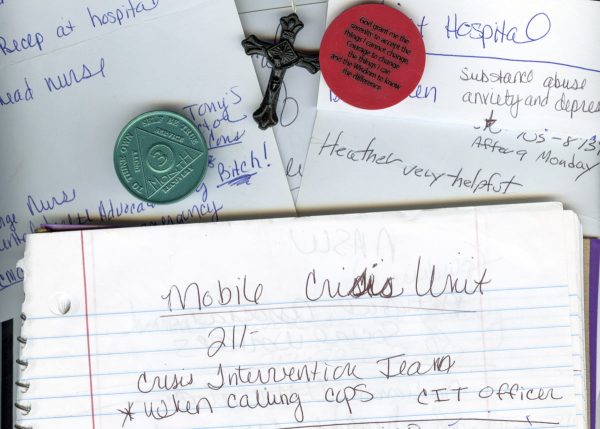 Recep at hospital
ead nurse
Tony's
Bitch!
Nurse
Advoca
God grant me the
serenity to accept the
things I cannot change,
Courage to change
the things I can,
and the Wisdom to know
the difference.
Hospital
substance abuse
anxiety and depres
After 9 Monday
Heather very helpful
TO THINE OWN SELF BE TRUE
UNITY
SERVICE
RECOVERY
3
MONTH
Mobile Crisis Unit
211-
Crisis Intervention Team
*When calling cops CIT Officer